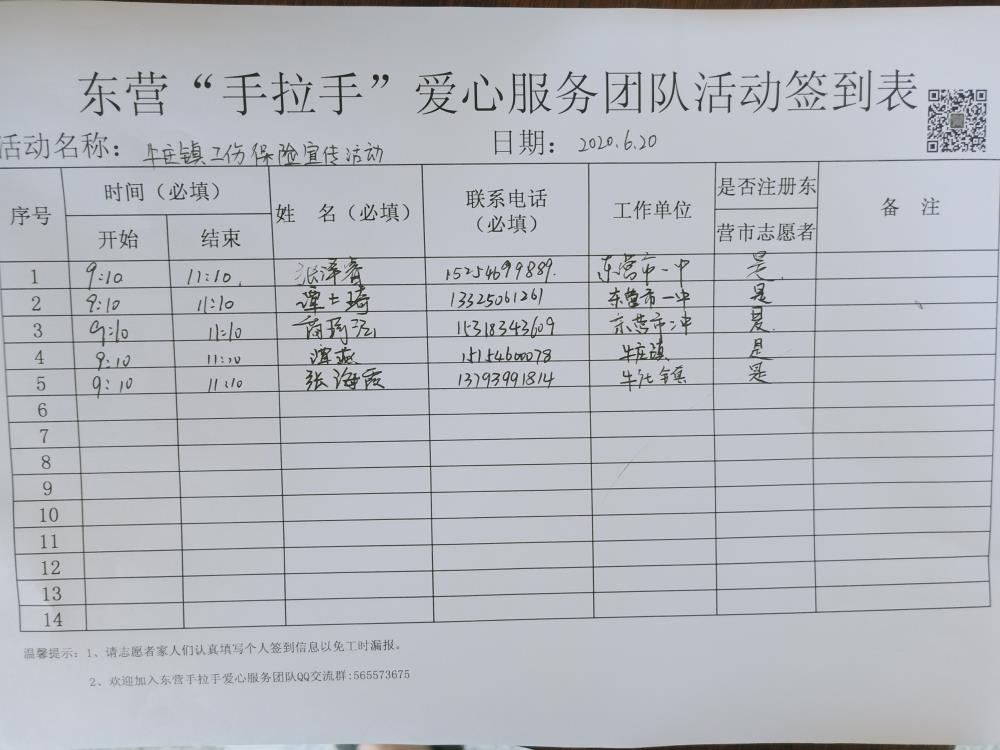 东营“手拉手”爱心服务团队活动签到表
活动名称: 牛庄镇工伤保险宣传活动 日期: 2020.6.20
序号 时间(必填) 姓 名(必填) 联系电话(必填) 工作单位 是否注册东营市志愿者 备 注
开始 结束
1 9:10 11:10 张泽睿 15254699889 东营市一中 是
2 9:10 11:10 谭士琦 13325061261 东营市一中 是
3 9:10 11:10 15318343609 东营市 是
4 9:10 11:10 谭燕 15154600078 牛庄镇 是
5 9:10 11:10 张海霞 13793991814 牛庄镇 是
6
7
8
9
10
11
12
13
14
温馨提示:1、请志愿者家人们认真填写个人签到信息以免工时漏报。
2、欢迎加入东营手拉手爱心服务团队QQ交流群:565573675